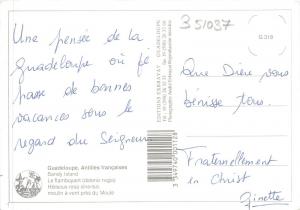 Une pensée de la
Guadeloupe où je
passe de bonnes
vacances sous le
regard du Seigneur
Guadeloupe, Antilles françaises
Sandy Island
Le flamboyant (delonix regia)
Hibiscus rosa sinensis
moulin à vent près du Moule
EDITIONS EXBRAYAT
351037
G.319
Que Dieu vous
bénisse tous.
Fraternellement
en Christ
Ginette